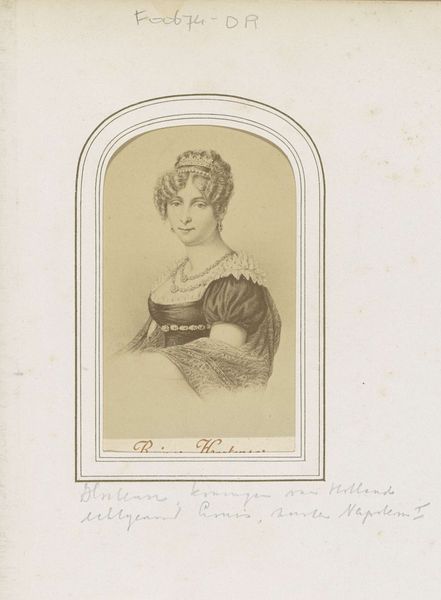 F00674-DR
Reine Hortense
Hortense, koningin van Holland
echtgenoot Louis, Napoleon I